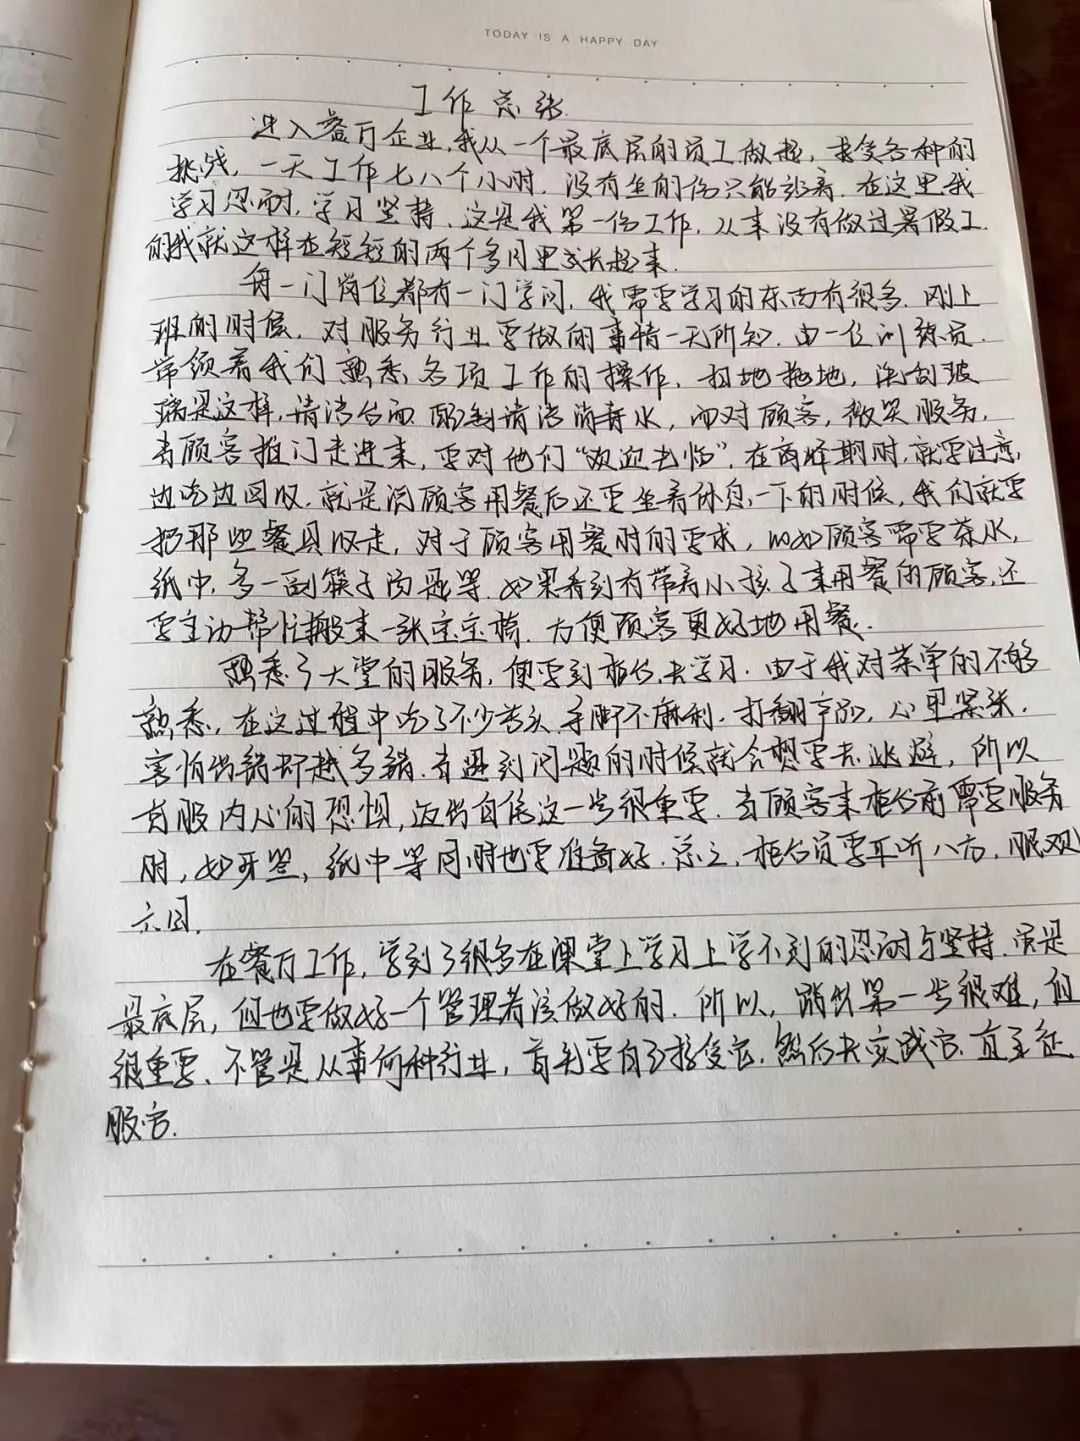 TODAY IS A HAPPY DAY
工作总结
进入餐厅企业，我从一个最底层的员工做起，接受各种的
挑战，一天工作七八个小时，没有坐的份只能站着，在这里我
学习忍耐，学习坚持，这是我第一份工作，从来没有做过暑假工
的我就这样在短短的两个多月里成长起来．
每一门岗位都有一门学问，我需要学习的东西有很多．刚上
班的时候，对服务行业要做的事情一无所知．由一位训练员
带领着我们熟悉各项工作的操作，扫地拖地，刮玻
璃是这样，清洁台面 配制清洁消毒水，面对顾客，微笑服务，
当顾客推门走进来，要对他们“欢迎光临”．在高峰期时，就要注意
边吃边回收，就是说顾客用餐后还要坐着休息一下的时候，我们就要
把那些餐具收走，对于顾客用餐时的要求，如顾客需要茶水，
纸巾，多一副筷子汤匙等．如果看到有带着小孩子来用餐的顾客，还
要主动帮忙搬来一张宝宝椅．方便顾客更好地用餐．
熟悉了大堂的服务，便要到柜台去学习．由于我对菜单的不够
熟悉，在这过程中吃了不少苦头．手脚不麻利．打翻，心里紧张．
害怕出错却越多错．当遇到问题的时候就会想要去逃避，所以
克服内心的恐惧，迈出自信这一步很重要．当顾客来柜台前需要服务
时，如牙签，纸巾等同时也要准备好．总之，柜台员要耳听八方，眼观
六路．
在餐厅工作，学到了很多在课堂上学习上学不到的忍耐与坚持．虽是
最底层，但也要做好一个管理者该做好的．所以，踏出第一步很难，但
很重要．不管是从事何种行业，首先要自己接受它．然后去实践它．直至征
服它．